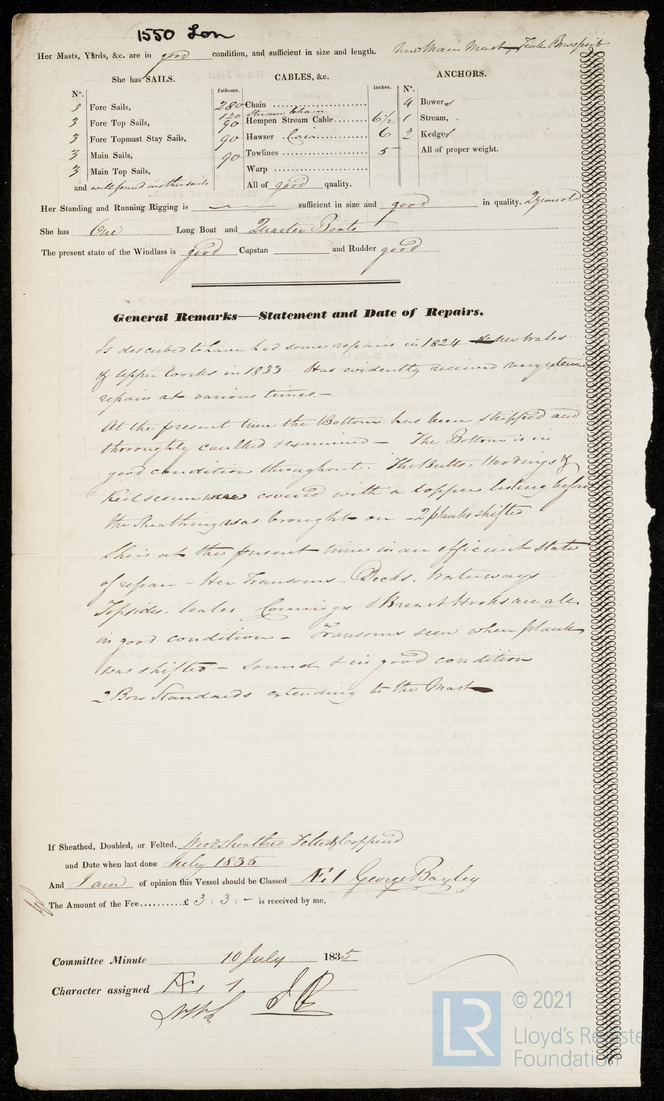 1550 Lon
Her Masts, Yards, &c. are in good condition, and sufficient in size and length. New Main Mast, Teak Bowsprit
She has SAILS.
CABLES, &c.
ANCHORS.
N°.
3 Fore Sails,
3 Fore Top Sails,
3 Fore Topmast Stay Sails,
3 Main Sails,
3 Main Top Sails,
and well found in other sails
Fathoms. Inches.
280 Chain
120 Stream Chain
90 Hempen Stream Cable 6½
90 Hawser 6
90 Towlines 5
Warp
All of good quality.
N°.
4 Bowers
1 Stream,
2 Kedges
All of proper weight.
Her Standing and Running Rigging is sufficient in size and good in quality. 2 years old
She has One Long Boat and Quarter Boats
The present state of the Windlass is good Capstan and Rudder good
General Remarks—Statement and Date of Repairs.
Is described to have had some repairs in 1824 New Wales
& upper works in 1833 Has evidently received very extensive
repairs at various times.—
At the present time the Bottom has been stripped and
thoroughly caulked & examined — The Bottom is in
good condition throughout. The Butts, Hoodings &
Keel seam were covered with a copper listing before
the Sheathing was brought on — 2 planks shifted
She is at the present time in an efficient state
of repair — Her Transoms — Decks. Waterways
Topsides. Wales. Comings & Breast Hooks are all
in good condition — Transoms seen when plank
was shifted — sound & in good condition
2 Bow Standards extending to the Mast
If Sheathed, Doubled, or Felted, Wood Sheathed Felted & Coppered
and Date when last done July 1835
And I am of opinion this Vessel should be Classed Æ 1 George Bayley
The Amount of the Fee £ 3 : 3 : — is received by me,
Committee Minute 10 July 1835
Character assigned Æ 1
© 2021
LR Lloyd's Register
Foundation